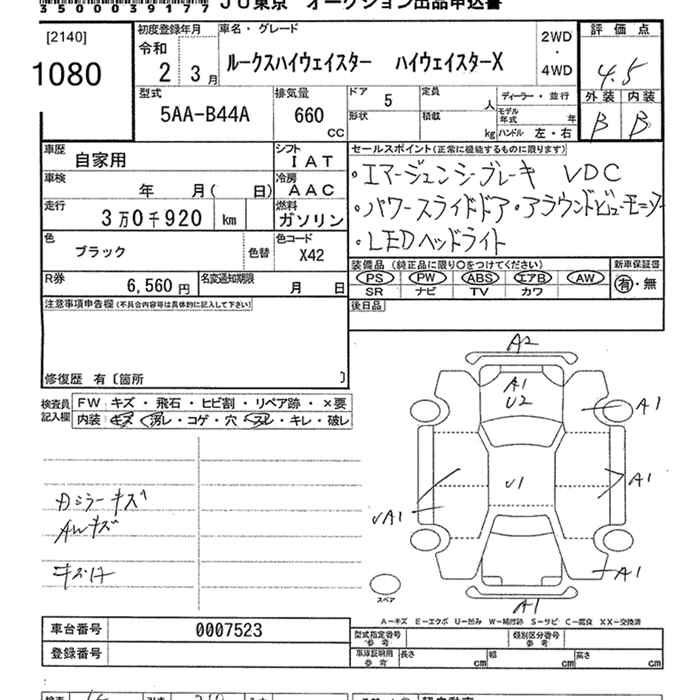 35000039177 JU東京 オークション出品申込書
[2140]
1080
初度登録年月
令和
2 3月
車名・グレード
ルークスハイウェイスター ハイウェイスターX
2WD
・
4WD
評価点
4.5
外装 内装
B B
型式
5AA-B44A
排気量
660
CC
ドア 5
形状
定員 人
積載 kg
ディーラー・並行
モデル年式 年
ハンドル 左・右
車歴
自家用
シフト
IAT
車検
年 月( 日)
冷房
AAC
走行
3万0千920 km
燃料
ガソリン
色
ブラック
色替
色コード
X42
R券
6,560円
名変通知期限
月 日
セールスポイント(正常に機能するものに限ります)
・エマージェンシーブレーキ VDC
・パワースライドドア・アラウンドビューモニター
・LEDヘッドライト
装備品(純正品に限り○をつけてください)
PS PW ABS エアB AW
SR ナビ TV カワ
新車保証書
有・無
注意事項申告欄(不具合内容等は具体的に記入して下さい)
後日品
修復歴 有〔箇所 〕
検査員記入欄
FW キズ・飛石・ヒビ割・リペア跡・×要
内装 キズ・汚レ・コゲ・穴・スレ・キレ・破レ
ミラーキズ
AWキズ
A2
A1
U2
A1
U1
A1
UA1
A1
A1
スペア
A－キズ E－エクボ U－凹み W－補修跡 S－サビ C－腐食 XX－交換済
車台番号 0007523
登録番号
型式指定番号
参考
類別区分番号
参考
車庫証明用
参考
長さ cm 幅 cm 高さ cm